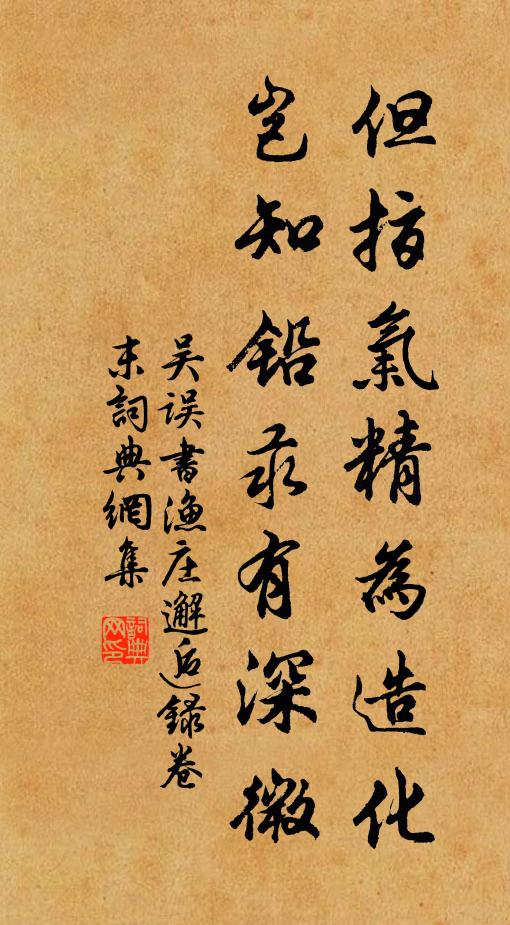 但指氣精為造化
豈知鉛汞有深微
吴误書漁庄邂逅録卷
末詞典網集
詞典網印